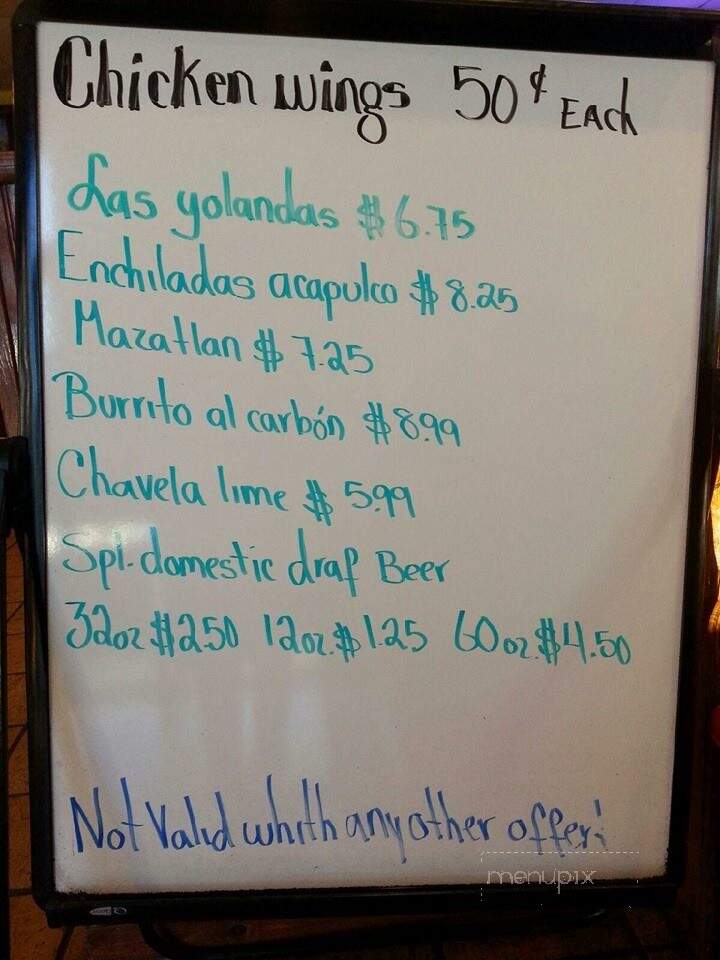 Chicken wings 50¢ EAch
Las yolandas $6.75
Enchiladas acapulco $8.25
Mazatlan $7.25
Burrito al carbón $8.99
Chavela lime $5.99
Spl. domestic draf Beer
32oz $2.50 12oz. $1.25 60oz. $4.50
Not Valid whith any other offer!
menupix